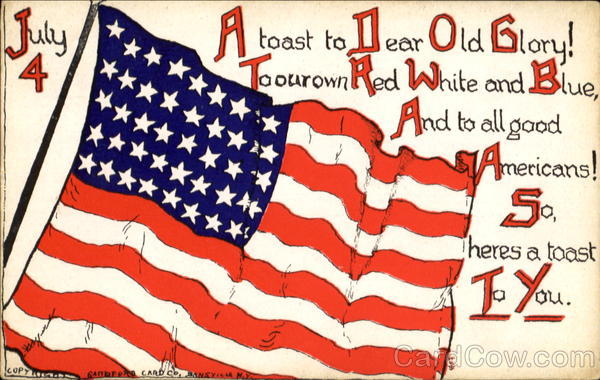 July
4
A toast to Dear Old Glory!
To our own Red White and Blue,
And to all good
Americans!
So,
heres a toast
To You.
COPYRIGHT
CARD CO.,
N.Y.
CardCow.com